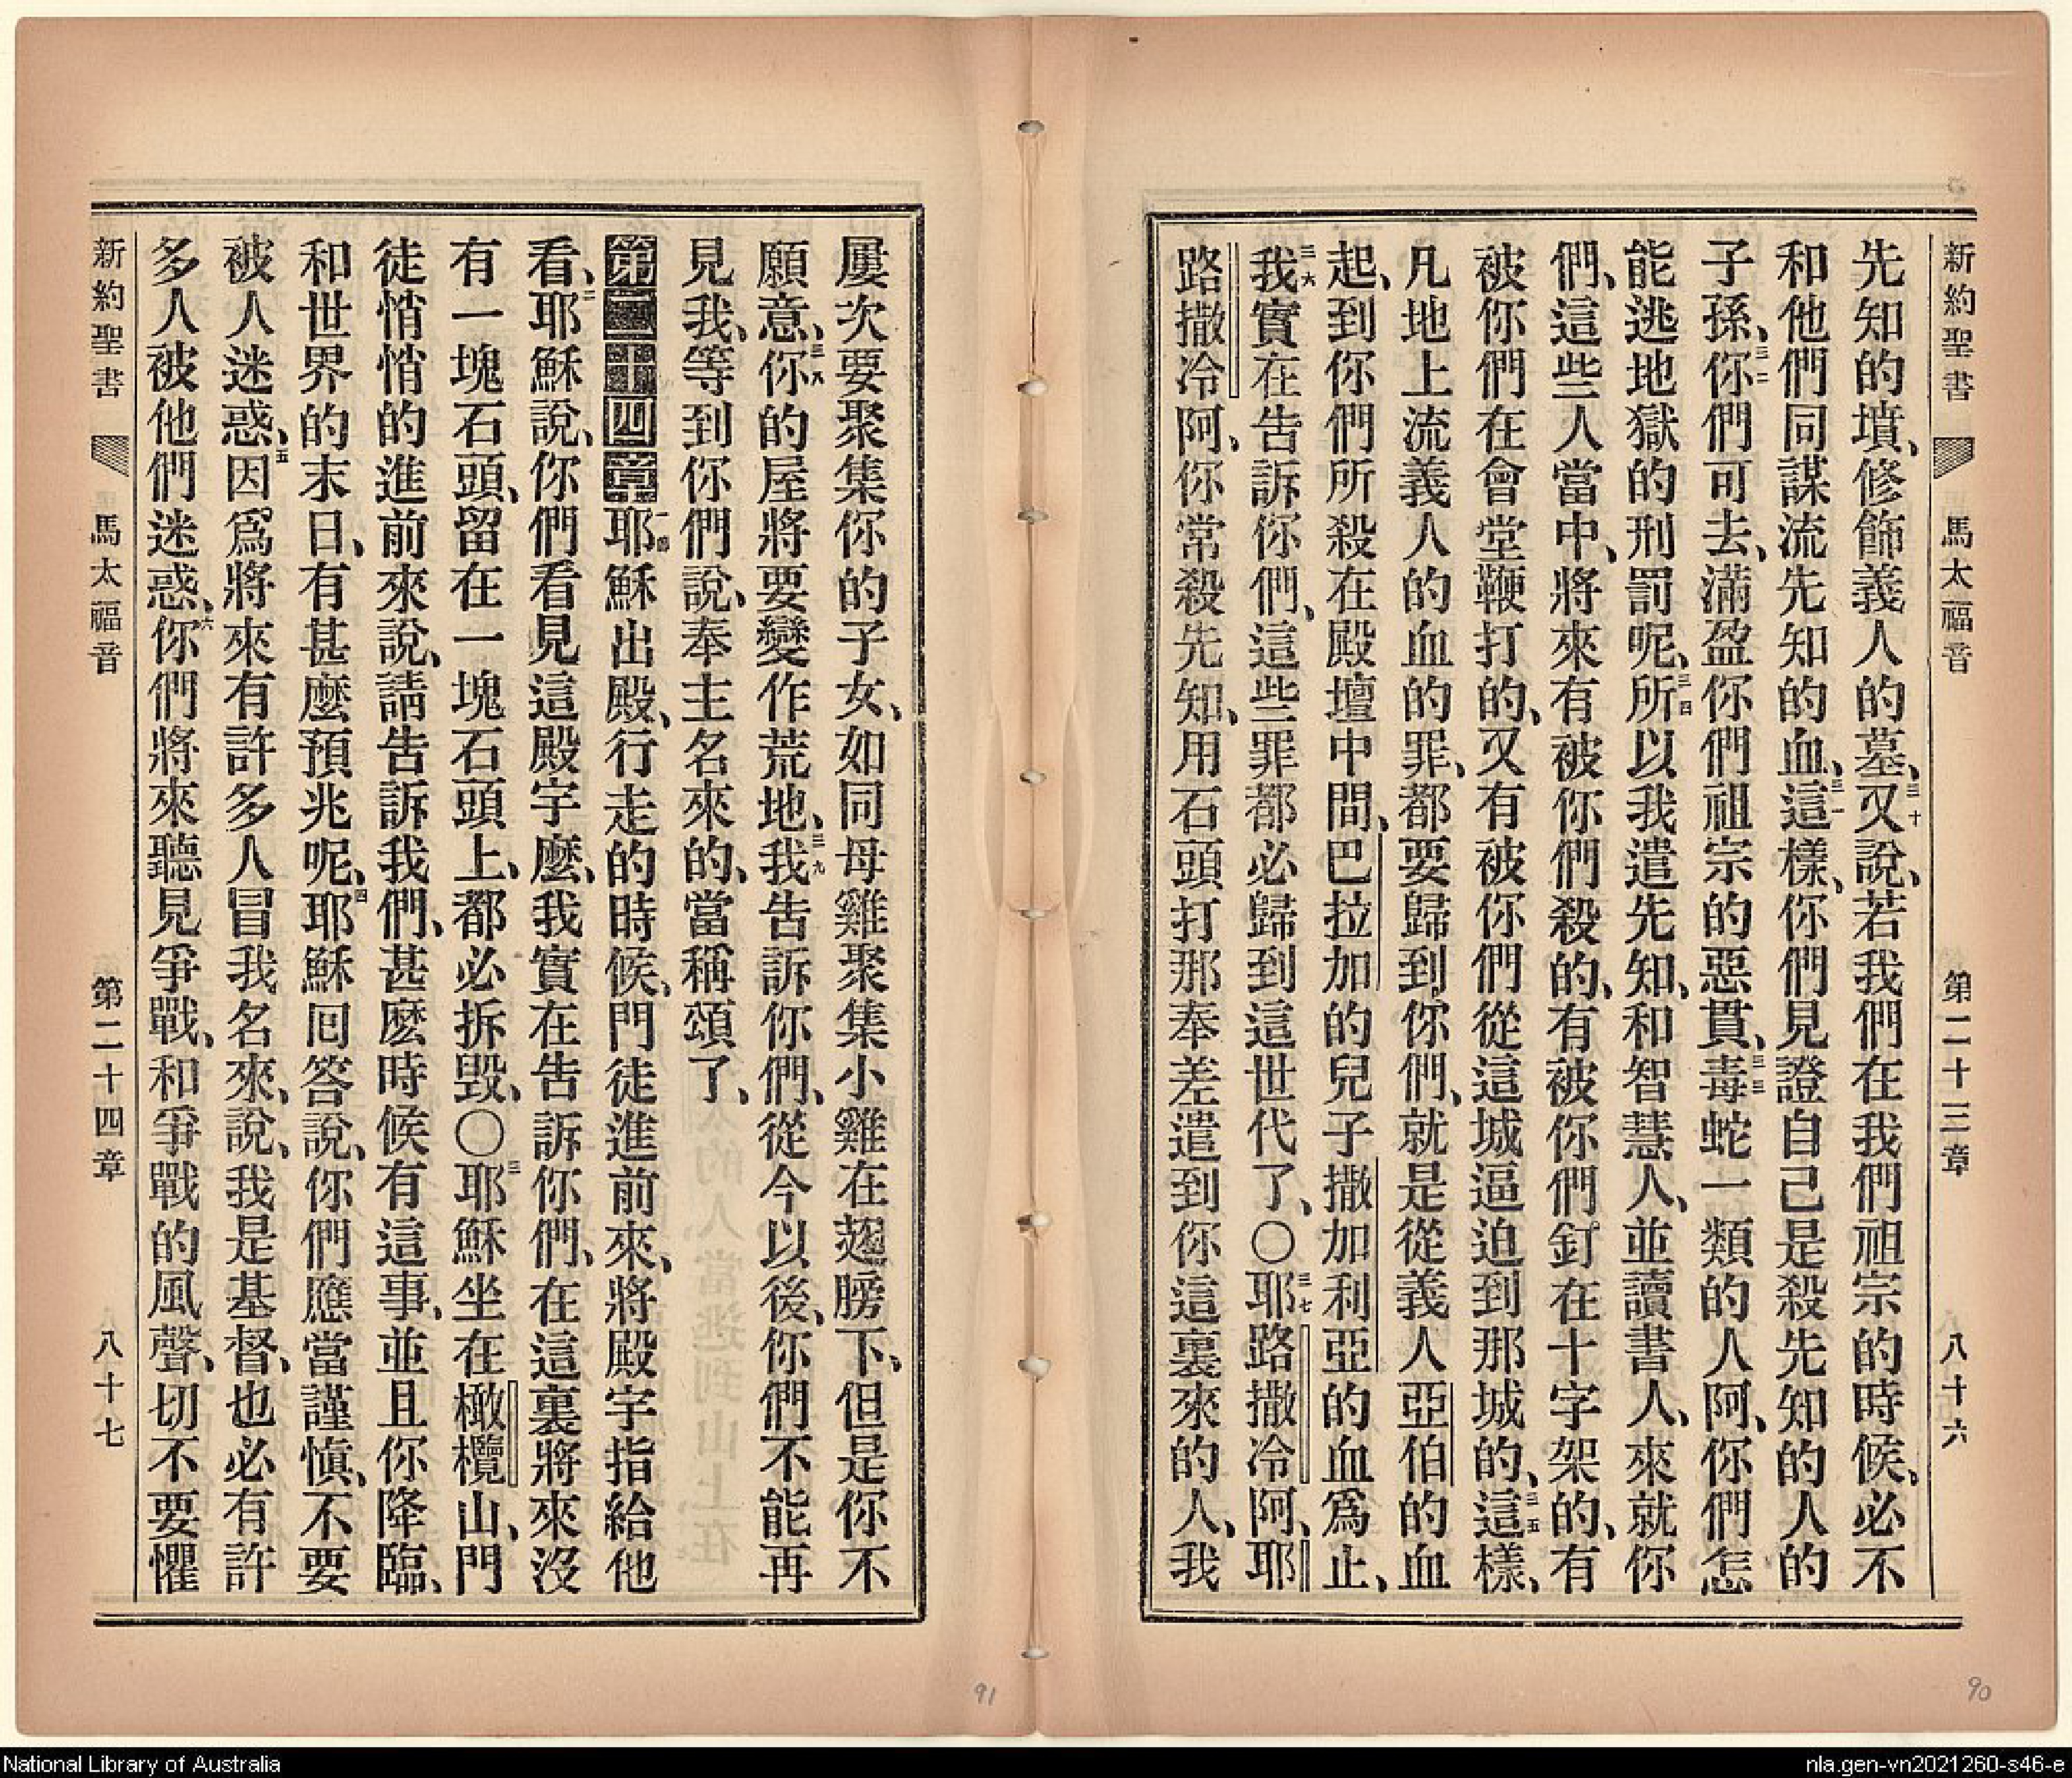 新約聖書　馬太福音　第二十三章　八十六
先知的墳、修飾義人的墓、三十又說、若我們在我們祖宗的時候、必不
和他們同謀流先知的血、三一這樣、你們見證自己是殺先知的人的
子孫、三二你們可去、滿盈你們祖宗的惡貫、三三毒蛇一類的人阿、你們怎
能逃地獄的刑罰呢、三四所以我遣先知、和智慧人、並讀書人、來就你
們、這些人當中、將來有被你們殺的、有被你們釘在十字架的、有
被你們在會堂鞭打的、又有被你們從這城逼迫到那城的、三五這樣、
凡地上流義人的血的罪、都要歸到你們、就是從義人亞伯的血
起、到你們所殺在殿壇中間、巴拉加的兒子撒加利亞的血爲止、
三六我實在告訴你們、這些罪都必歸到這世代了、〇三七耶路撒冷阿、耶
路撒冷阿、你常殺先知、用石頭打那奉差遣到你這裏來的人、我
屢次要聚集你的子女、如同母雞聚集小雞在翅膀下、但是你不
願意、三八你的屋將要變作荒地、三九我告訴你們、從今以後、你們不能再
見我、等到你們說、奉主名來的、當稱頌了、
第二十四章一耶穌出殿、行走的時候、門徒進前來、將殿宇指給他
看、二耶穌說、你們看見這殿宇麼、我實在告訴你們、在這裏將來沒
有一塊石頭、留在一塊石頭上、都必拆毀、〇三耶穌坐在橄欖山、門
徒悄悄的進前來說、請告訴我們、甚麼時候有這事、並且你降臨、
和世界的末日、有甚麼預兆呢、四耶穌囘答說、你們應當謹愼、不要
被人迷惑、五因爲將來有許多人冒我名來、說、我是基督、也必有許
多人被他們迷惑、六你們將來聽見爭戰、和爭戰的風聲、切不要懼
新約聖書　馬太福音　第二十四章　八十七
91
90
National Library of Australia
nla.gen-vn2021260-s46-e